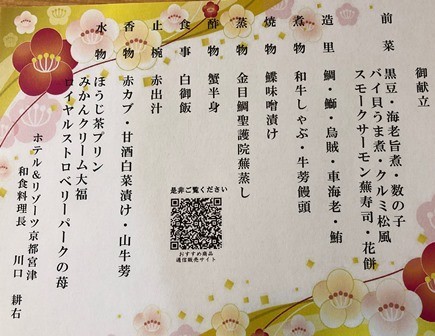 御献立
前菜 黒豆・海老旨煮・数の子
バイ貝うま煮・クルミ松風
スモークサーモン蕪寿司・花餅
造里 鯛・鰤・烏賊・車海老・鮪
煮物 和牛しゃぶ・牛蒡饅頭
焼物 鰈味噌漬け
蒸物 金目鯛聖護院蕪蒸し
酢物 蟹半身
食事 白御飯
止椀 赤出汁
香物 赤カブ・甘酒白菜漬け・山牛蒡
水物 ほうじ茶プリン
みかんクリーム大福
ロイヤルストロベリーパークの苺
ホテル&リゾーツ 京都宮津
和食料理長 川口 耕右
是非ご覧ください
おすすめ商品
通信販売サイト